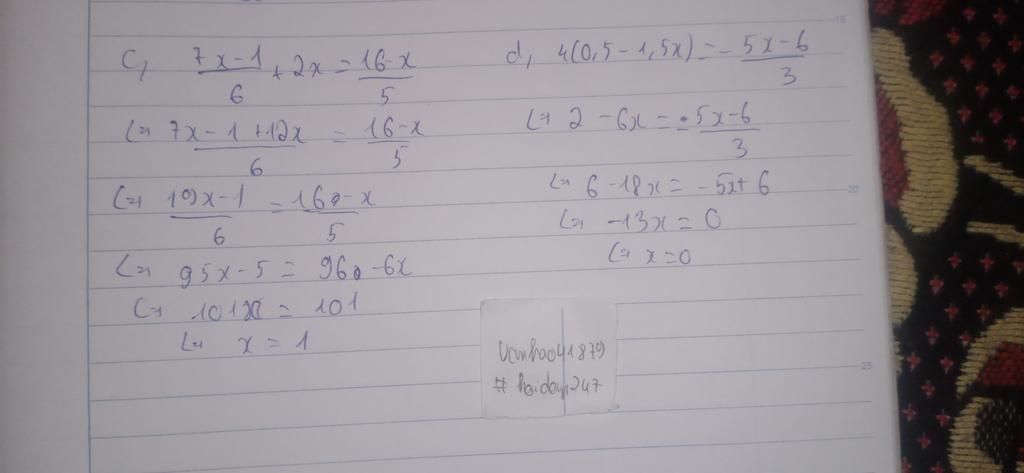 c, (7x-1)/6 + 2x = (16-x)/5
<=> (7x-1+12x)/6 = (16-x)/5
<=> (19x-1)/6 = (16-x)/5
<=> 95x-5 = 96-6x
<=> 101x = 101
<=> x = 1
d, 4(0,5-1,5x) = -(5x-6)/3
<=> 2-6x = -(5x-6)/3
<=> 6-18x = -5x+6
<=> -13x = 0
<=> x=0
# hoidap247
15
20
25